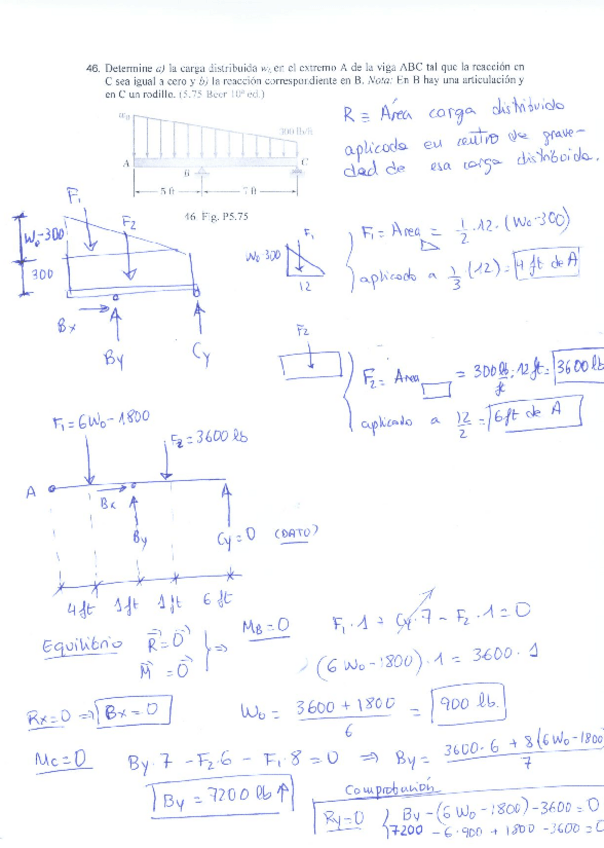 46. Determine a) la carga distribuida w₀ en el extremo A de la viga ABC tal que la reacción en
C sea igual a cero y b) la reacción correspondiente en B. Nota: En B hay una articulación y
en C un rodillo. (5.75 Beer 10ª ed.)
R ≡ Área carga distribuido
aplicada en centro de grave-
dad de esa carga distribuida.
w₀
300 lb/ft
A
B
C
5 ft
7 ft
46 Fig. P5.75
F₁
F₂
W₀-300
300
Bx
By
Cy
F₁
W₀ 300
12
F₁ = Área = 1/2 · 12 · (W₀-300)
aplicado a 1/3 (12) = 4 ft de A
F₂
F₂ = Área = 300 lb/ft · 12 ft = 3600 lb
aplicado a 12/2 = 6 ft de A
F₁ = 6W₀ - 1800
F₂ = 3600 lb
A
Bx
By
Cy = 0 (DATO)
4 ft 1 ft 1 ft 6 ft
Equilibrio R = 0 } ⇒ M_B = 0
M = 0
F₁ · 1 + Cy · 7 - F₂ · 1 = 0
(6 W₀ - 1800) · 1 = 3600 · 1
Rx = 0 ⇒ Bx = 0
W₀ = 3600 + 1800 / 6 = 900 lb.
Mc = 0 By · 7 - F₂ · 6 - F₁ · 8 = 0 ⇒ By = 3600 · 6 + 8 (6W₀ - 1800 / 7
By = 7200 lb ↑
Comprobación
Ry = 0 { By - (6 W₀ - 1800) - 3600 = 0
7200 - 6 · 900 + 1800 - 3600 = 0